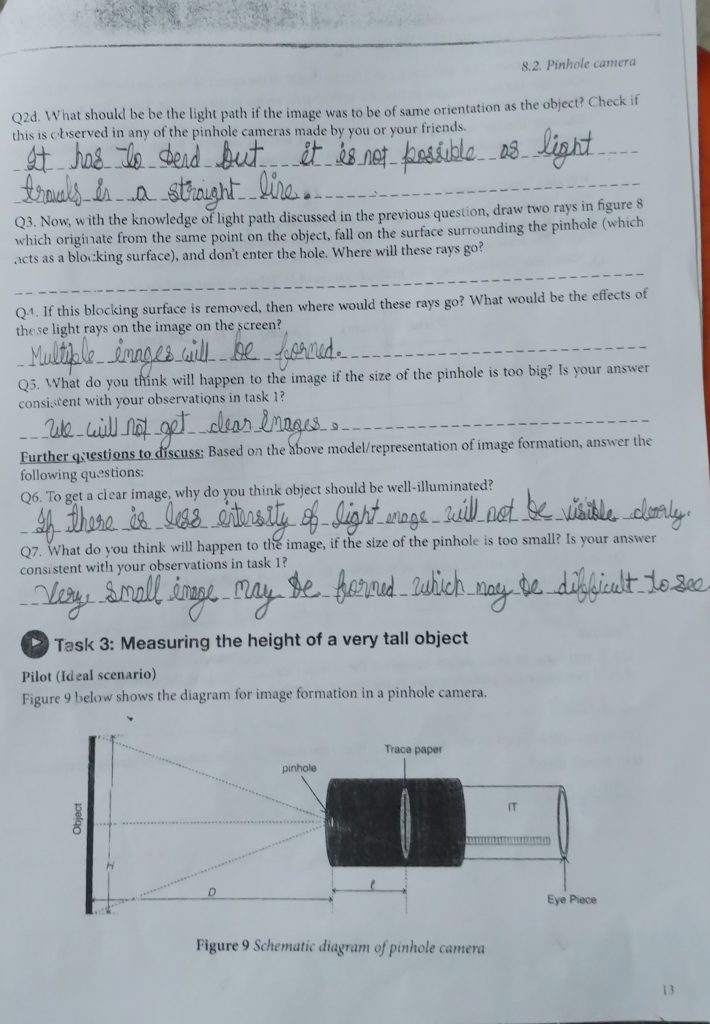 8.2. Pinhole camera
Q2d. What should be be the light path if the image was to be of same orientation as the object? Check if
this is observed in any of the pinhole cameras made by you or your friends.
It has to bend but it is not possible as light
travels in a straight line.
Q3. Now, with the knowledge of light path discussed in the previous question, draw two rays in figure 8
which originate from the same point on the object, fall on the surface surrounding the pinhole (which
acts as a blocking surface), and don't enter the hole. Where will these rays go?
Q4. If this blocking surface is removed, then where would these rays go? What would be the effects of
these light rays on the image on the screen?
Multiple images will be formed.
Q5. What do you think will happen to the image if the size of the pinhole is too big? Is your answer
consistent with your observations in task 1?
We will not get clear images.
Further questions to discuss: Based on the above model/representation of image formation, answer the
following questions:
Q6. To get a clear image, why do you think object should be well-illuminated?
If there is less intensity of light image will not be visible clearly.
Q7. What do you think will happen to the image, if the size of the pinhole is too small? Is your answer
consistent with your observations in task 1?
Very small image may be formed which may be difficult to see.
Task 3: Measuring the height of a very tall object
Pilot (Ideal scenario)
Figure 9 below shows the diagram for image formation in a pinhole camera.
Trace paper
pinhole
Object
IT
H
D
l
Eye Piece
Figure 9 Schematic diagram of pinhole camera
13